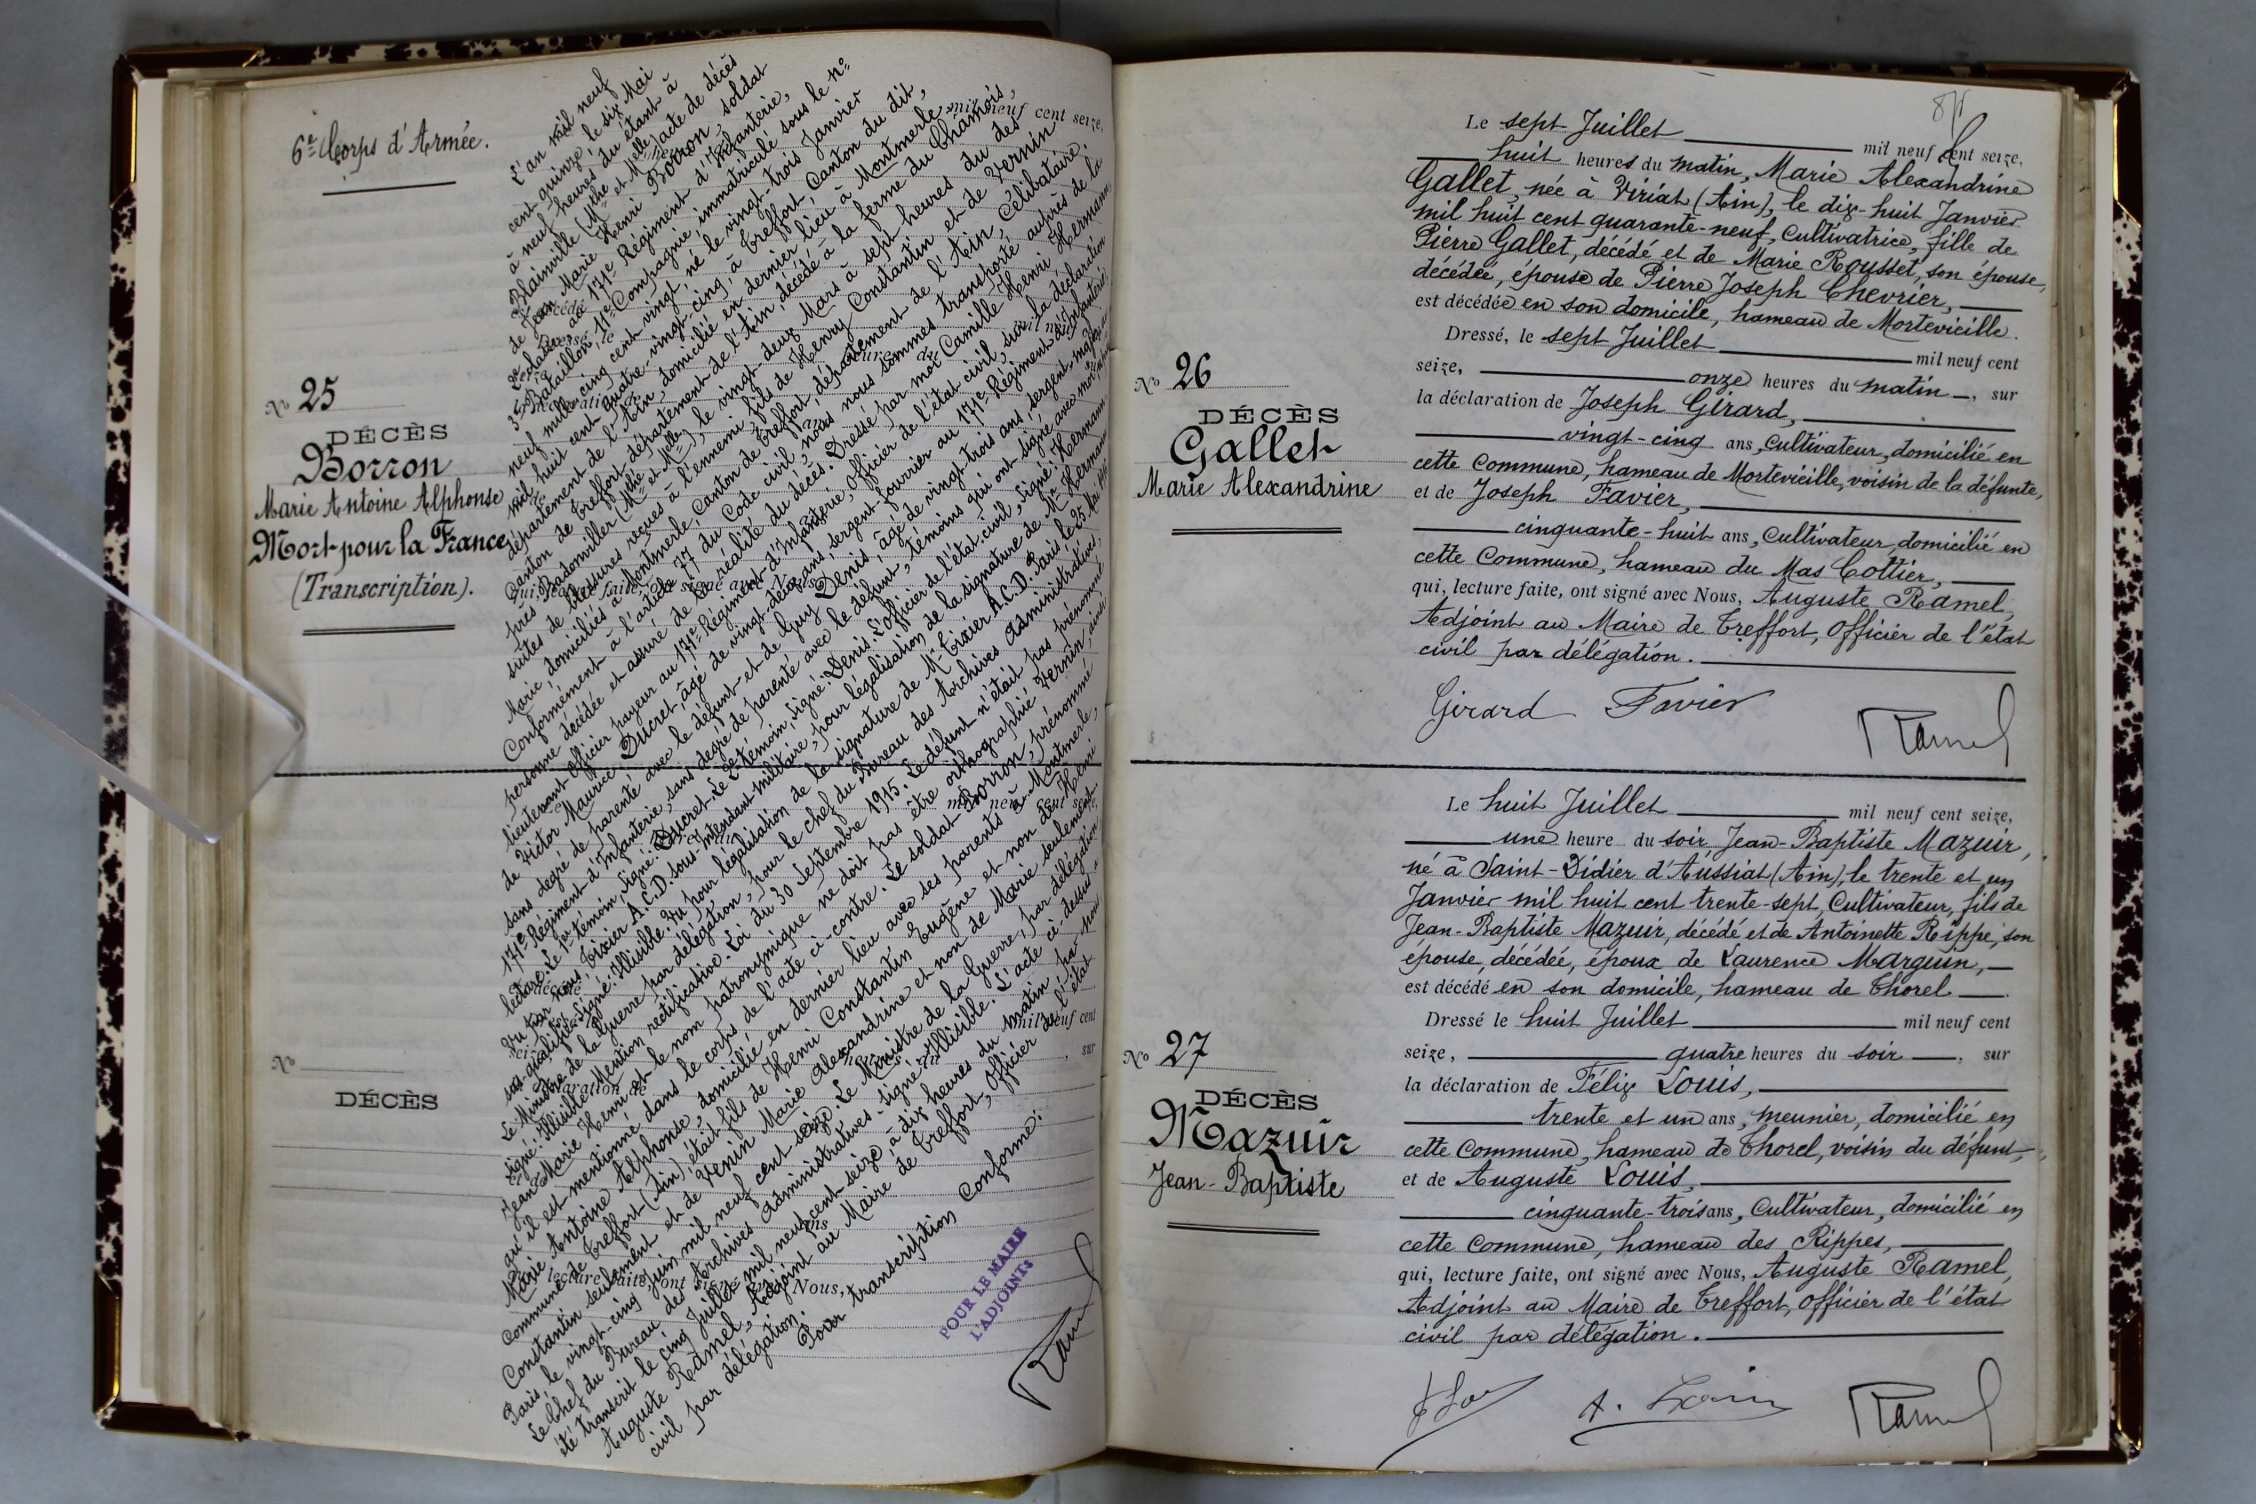 6e Corps d'Armée.
No 25
DÉCÈS
Borron
Marie Antoine Alphonse
Mort pour la France
(Transcription).
L'an mil neuf
cent quinze, le six Mai
à neuf heures du étant à
Blainville (Mthe et Melle) acte de décès
de Jean Marie Henri Borron, soldat
2e classe au 171e Régiment d'Infanterie,
3e Bataillon, 11e Compagnie immatriculé sous le no
neuf mille cinq cent vingt, né le vingt-trois Janvier
mil huit cent quatre-vingt-cinq, à Treffort, Canton du dit,
département de l'Ain, domicilié en dernier lieu à Montmerle,
Canton de Treffort département de l'Ain, décédé à la ferme du Chamois,
près Badonviller (Mthe et Melle), le vingt-deux Mars à sept heures du des
suites de blessures reçues à l'ennemi, fils de Henry Constantin et de Vernin
Marie, domiciliés à Montmerle, Canton de Treffort, département de l'Ain, Célibataire.
Conformément à l'article 77 du Code civil, nous nous sommes transporté auprès de la
personne décédée et assuré de la réalité du décès. Dressé par moi Camille Henri Hermann
lieutenant officier payeur au 171e Régiment d'Infanterie, officier de l'état civil, sur la déclaration
de Victor Maurice Ducret, âgé de vingt-deux ans sergent fourrier au 171e Régiment d'Infanterie,
sans degré de parenté avec le défunt et de Guy Denis âgé de vingt-trois ans, sergent-major au
171e Régiment d'Infanterie, sans degré de parenté avec le défunt, témoins qui ont signé avec moi après
lecture. Le 1er témoin, signé: Ducret. Le 2e témoin, signé: Denis. L'officier de l'état civil, signé: Hermann.
Vu par nous, Tixier A.C.D. sous-Intendant militaire, pour légalisation de la signature de Mr Hermann
sus-qualifié. Signé: Illisible. Vu pour légalisation de la signature de Mr Tixier A.C.D. Paris le 25 Mai
Le Ministre de la Guerre par délégation, pour le chef du Bureau des Archives administratives,
signé: Illisible. Mention rectificative. Loi du 30 Septembre 1915. Le défunt n'était pas prénommé
Jean Marie Henri et le nom patronymique ne doit pas être orthographié Vernin, ainsi
qu'il est mentionné dans le corps de l'acte ci-contre. Le soldat Borron, prénommé
Marie Antoine Alphonse, domicilié en dernier lieu avec ses parents à Montmerle,
Commune de Treffort (Ain), était fils de Henri Constantin Eugène et non de Henri
Constantin seulement et de Venin Marie Alexandrine et non de Marie seulement.
Paris, le vingt-cinq Juin mil neuf cent seize. Le Ministre de la Guerre, par délégation
Le Chef du Bureau des Archives administratives. Signé: Illisible. L'acte ci-dessus a
été transcrit le cinq Juillet mil neuf cent seize, à dix heures du matin par Nous
Auguste Ramel, Adjoint au Maire de Treffort, Officier de l'état
civil par délégation. Pour transcription conforme:
POUR LE MAIRE
L'ADJOINT:
Ramel
No
DÉCÈS
mil neuf cent seize,
mil neuf cent
, sur
lecture faite, ont signé avec Nous,
No 26
DÉCÈS
Gallet
Marie Alexandrine
Le sept Juillet mil neuf cent seize,
huit heures du matin, Marie Alexandrine
Gallet, née à Viriat (Ain), le dix-huit Janvier
mil huit cent quarante-neuf, Cultivatrice, fille de
Pierre Gallet, décédé et de Marie Rousset, son épouse,
décédée, épouse de Pierre Joseph Chevrier,
est décédée en son domicile, hameau de Mortevieille.
Dressé, le sept Juillet mil neuf cent
seize, onze heures du matin, sur
la déclaration de Joseph Girard,
vingt-cinq ans, Cultivateur, domicilié en
cette Commune, hameau de Mortevieille, voisin de la défunte,
et de Joseph Favier,
cinquante-huit ans, Cultivateur, domicilié en
cette Commune, hameau du Mas Cottier,
qui, lecture faite, ont signé avec Nous, Auguste Ramel,
Adjoint au Maire de Treffort, Officier de l'état
civil par délégation.
Girard Favier Ramel
No 27
DÉCÈS
Mazuir
Jean-Baptiste
Le huit Juillet mil neuf cent seize,
une heure du soir, Jean-Baptiste Mazuir,
né à Saint-Didier d'Aussiat (Ain), le trente et un
Janvier mil huit cent trente-sept, Cultivateur, fils de
Jean-Baptiste Mazuir, décédé et de Antoinette Rippe, son
épouse, décédée, époux de Laurence Marguin,
est décédé en son domicile, hameau de Thorel.
Dressé le huit Juillet mil neuf cent
seize, quatre heures du soir, sur
la déclaration de Félix Louis,
trente et un ans, meunier, domicilié en
cette Commune, hameau de Thorel, voisin du défunt,
et de Auguste Louis,
cinquante-trois ans, Cultivateur, domicilié en
cette Commune, hameau des Rippes,
qui, lecture faite, ont signé avec Nous, Auguste Ramel,
Adjoint au Maire de Treffort, Officier de l'état
civil par délégation.
Ramel